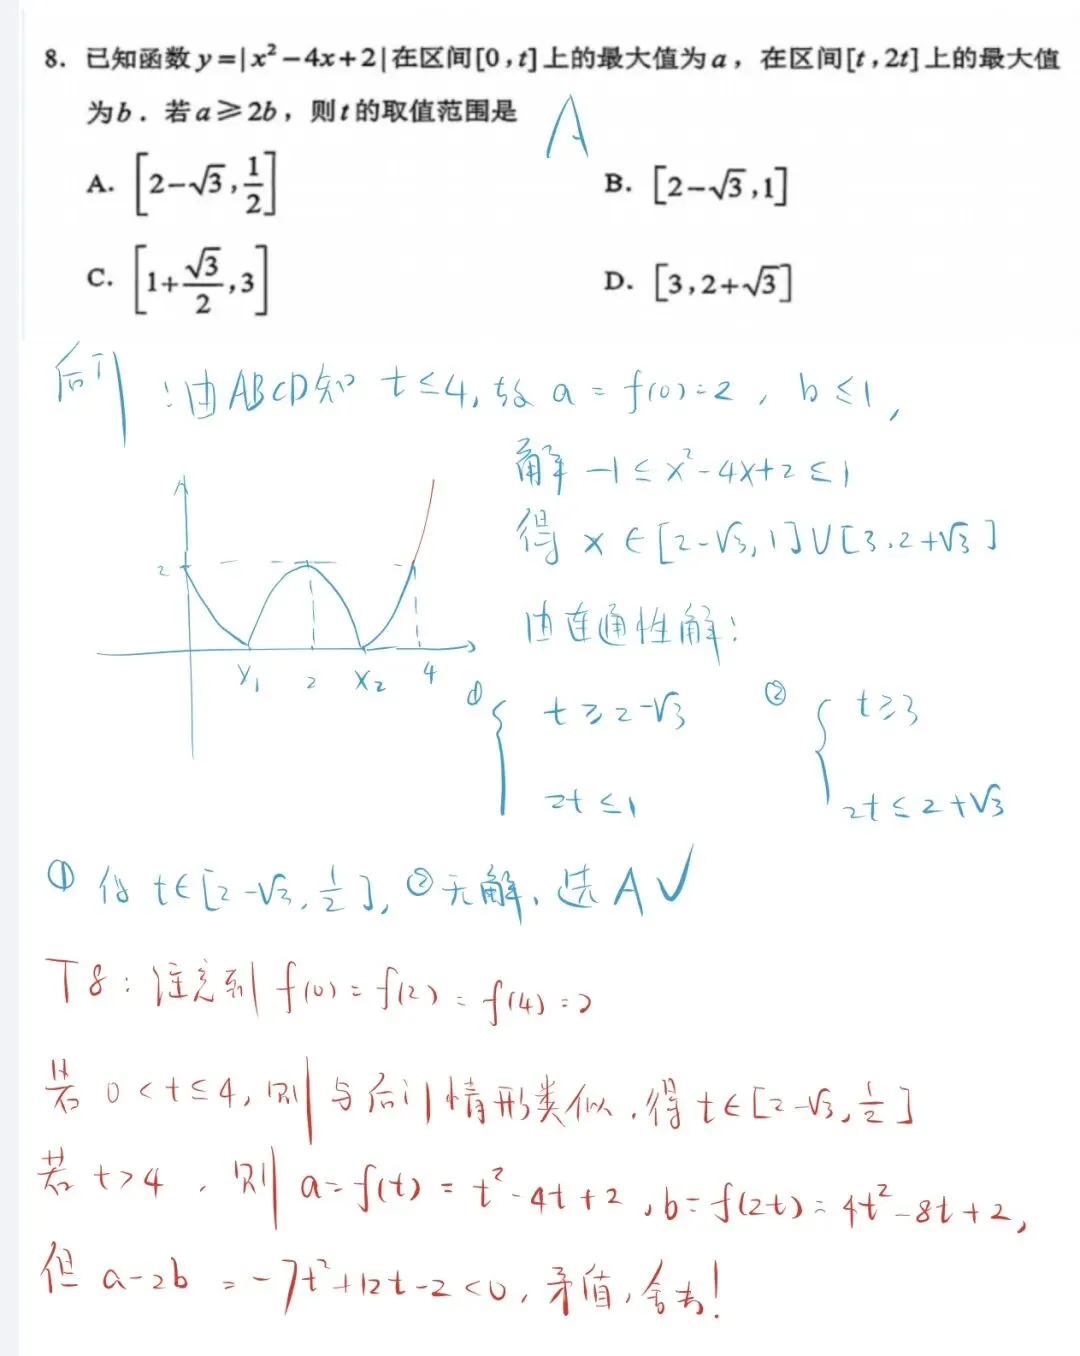 8. 已知函数 y=|x²-4x+2| 在区间[0,t]上的最大值为a，在区间[t,2t]上的最大值
为b．若a≥2b，则t的取值范围是
A
A. [2-√3,1/2]
B. [2-√3,1]
C. [1+√3/2,3]
D. [3,2+√3]
后门:由ABCD知 t≤4,故 a=f(0)=2, b≤1,
解 -1≤x²-4x+2≤1
得 x∈[2-√3,1]∪[3,2+√3]
由连通性解:
2
x₁ 2 x₂ 4
① { t≥2-√3
2t≤1
② { t≥3
2t≤2+√3
① 得 t∈[2-√3,1/2], ②无解, 选A√
T8:注意到 f(0)=f(2)=f(4)=2
若 0<t≤4,则与后门情形类似,得 t∈[2-√3,1/2]
若 t>4,则 a=f(t)=t²-4t+2, b=f(2t)=4t²-8t+2,
但 a-2b=-7t²+12t-2<0,矛盾,舍去!